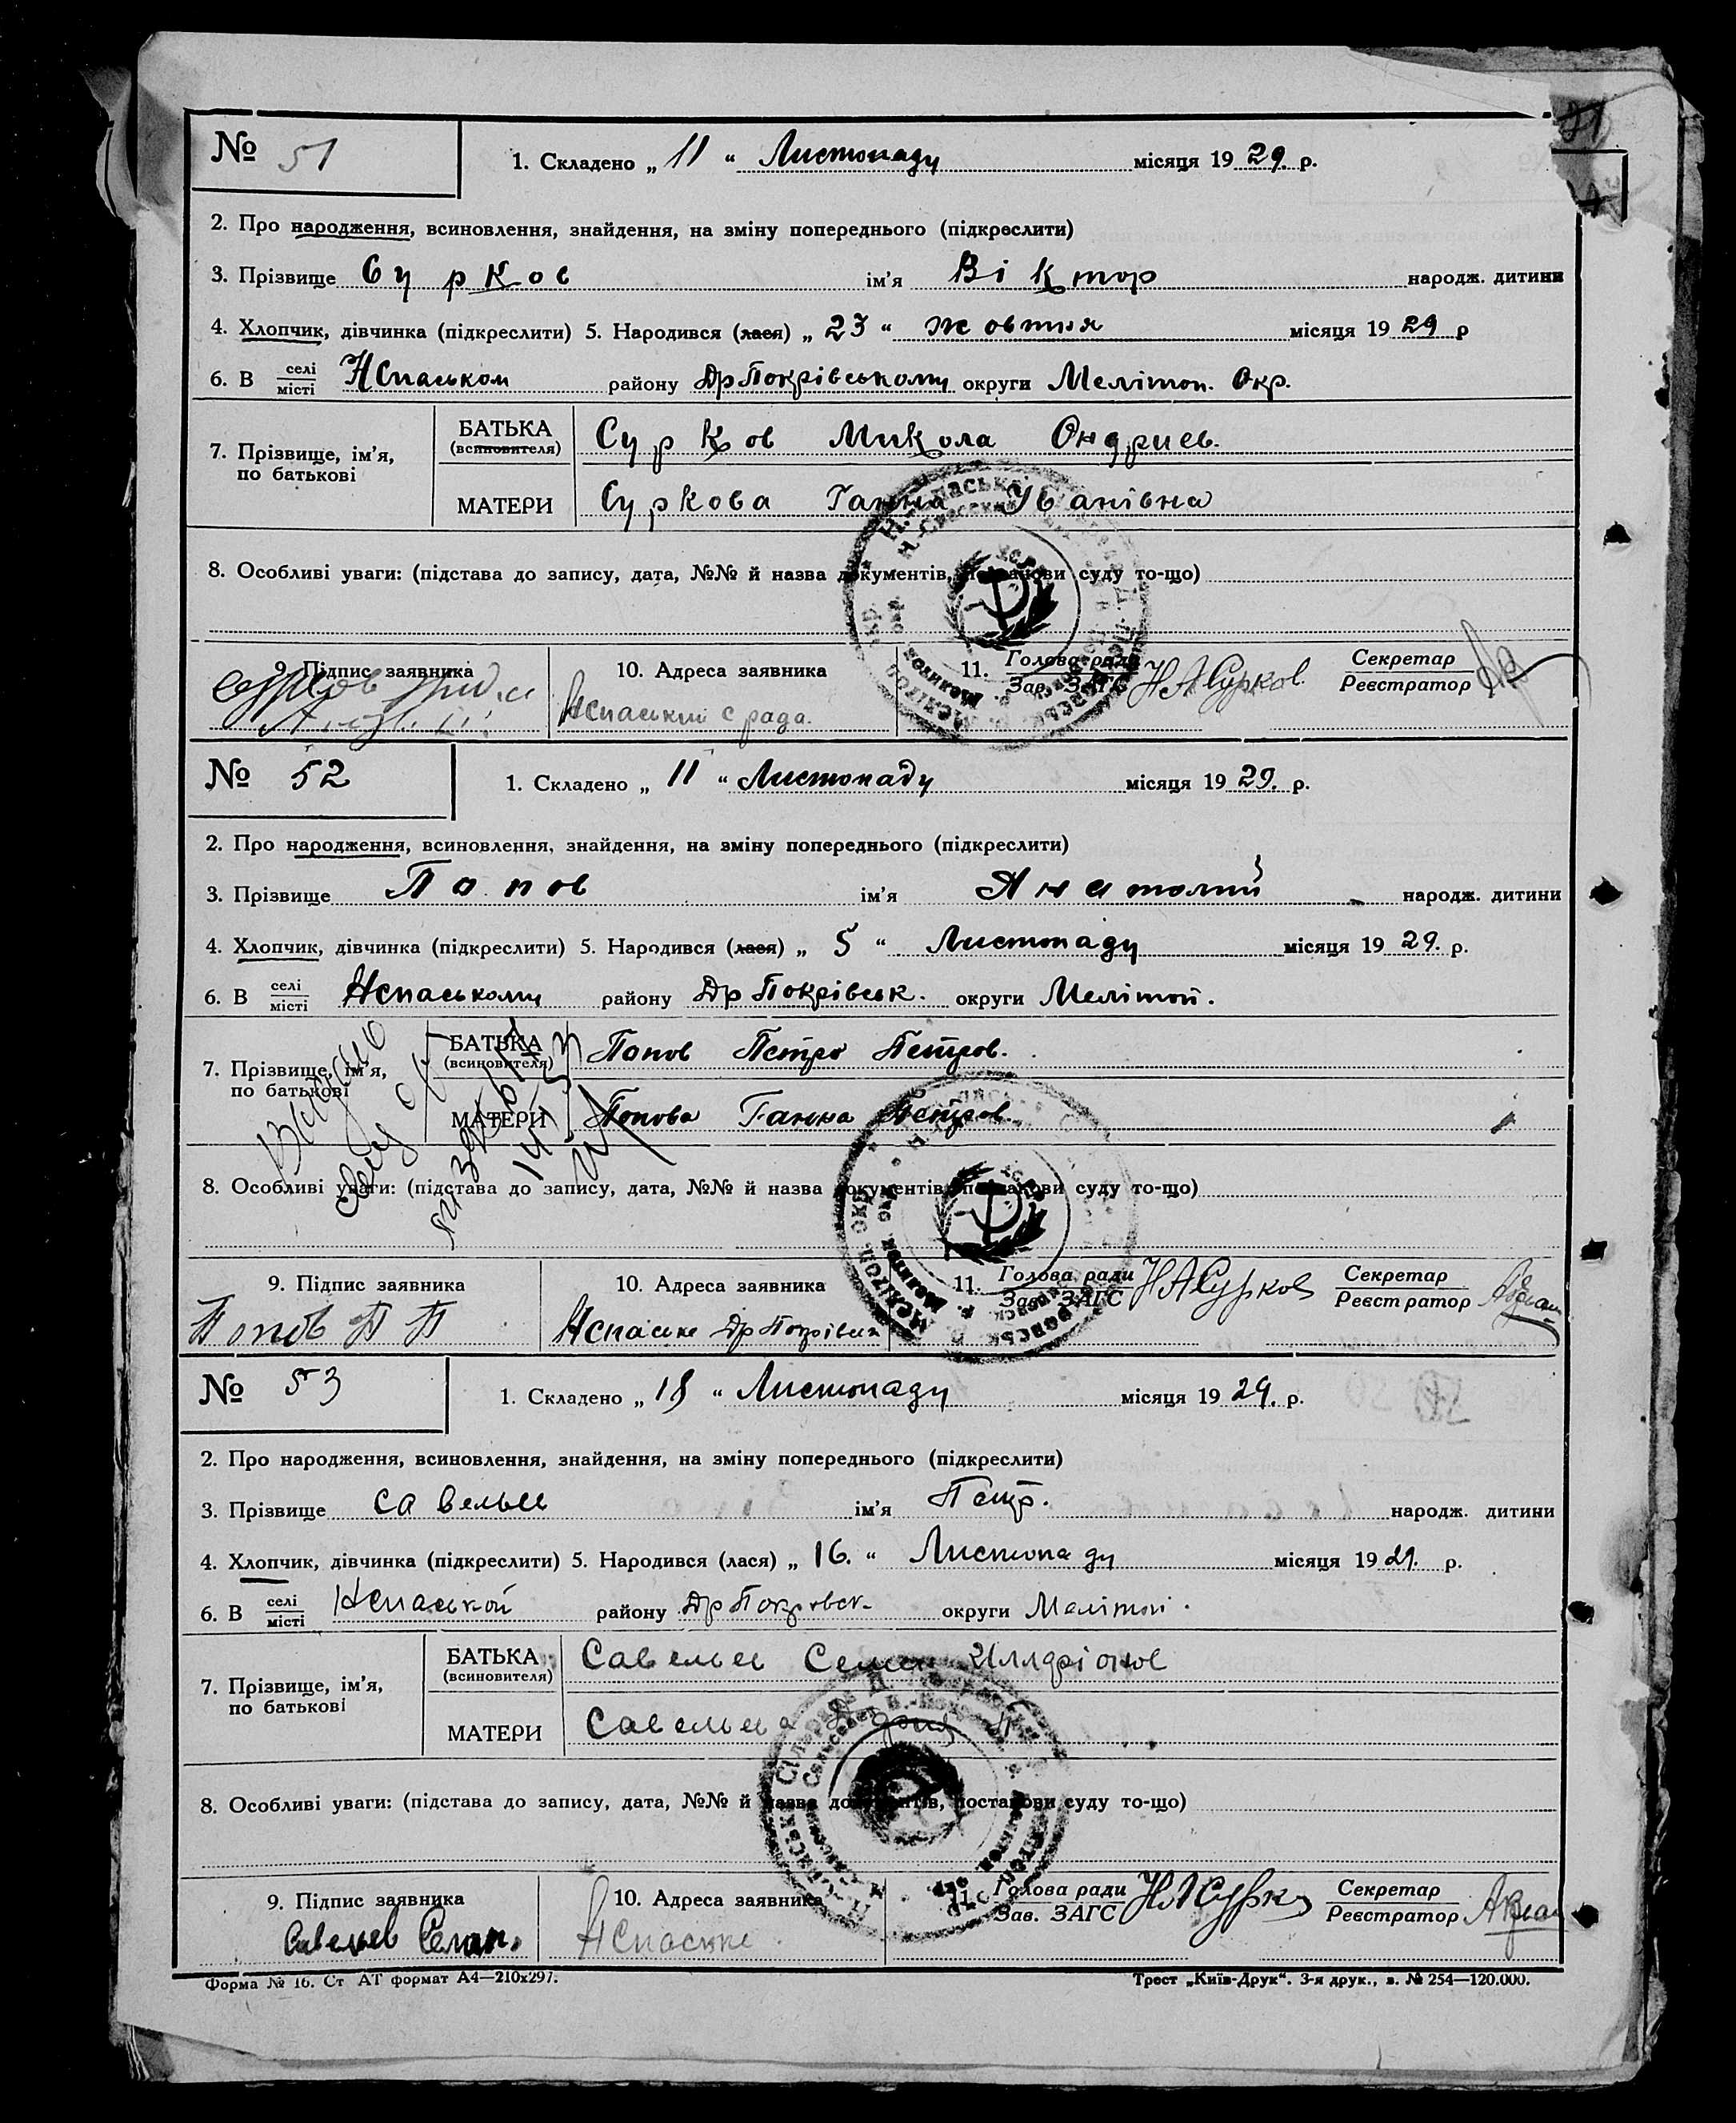 № 51
1. Складено „ 11 “ Листопаду місяця 1929. р.
2. Про народження, всиновлення, знайдення, на зміну попереднього (підкреслити)
3. Прізвище Сурков ім'я Віктор народж. дитини
4. Хлопчик, дівчинка (підкреслити) 5. Народився (лася) „ 23 “ жовтня місяця 1929 р
6. В селі місті НСпаськом району ДрПокрівському округи Мелітоп. Окр.
7. Прізвище, ім'я, по батькові
БАТЬКА (всиновителя) Сурков Микола Ондриев.
МАТЕРИ Суркова Ганна Іванівна
8. Особливі уваги: (підстава до запису, дата, №№ й назва документів, постанови суду то-що)
9. Підпис заявника 10. Адреса заявника 11. Голова ради Зав. ЗАГС НАСурков Секретар Реєстратор
Нспаський с рада.
№ 52
1. Складено „ 11 “ Листопаду місяця 1929. р.
2. Про народження, всиновлення, знайдення, на зміну попереднього (підкреслити)
3. Прізвище Попов ім'я Анатолий народж. дитини
4. Хлопчик, дівчинка (підкреслити) 5. Народився (лася) „ 5 “ Листопаду місяця 1929. р.
6. В селі місті Нспаському району ДрПокрівськ. округи Мелітоп.
7. Прізвище, ім'я, по батькові
БАТЬКА (всиновителя) Попов Петро Петров.
МАТЕРИ Попова Ганна Петров.
8. Особливі уваги: (підстава до запису, дата, №№ й назва документів, постанови суду то-що)
9. Підпис заявника 10. Адреса заявника 11. Голова ради Зав. ЗАГС НАСурков Секретар Реєстратор
Попов П П Нспаське ДрПокрівськ
№ 53
1. Складено „ 18 “ Листопаду місяця 1929. р.
2. Про народження, всиновлення, знайдення, на зміну попереднього (підкреслити)
3. Прізвище Савельев ім'я Петр. народж. дитини
4. Хлопчик, дівчинка (підкреслити) 5. Народився (лася) „ 16. “ Листопаду місяця 1929. р.
6. В селі місті Нспаськой району ДрПокровск. округи Мелітоп.
7. Прізвище, ім'я, по батькові
БАТЬКА (всиновителя) Савельев Семен Илларіонов
МАТЕРИ Савельева
8. Особливі уваги: (підстава до запису, дата, №№ й назва документів, постанови суду то-що)
9. Підпис заявника 10. Адреса заявника 11. Голова ради Зав. ЗАГС НАСурков Секретар Реєстратор
Савельев Семен. Нспаське
Форма № 16. Ст АТ формат А4—210х297.
Трест „Київ-Друк“. 3-я друк., з. № 254—120.000.